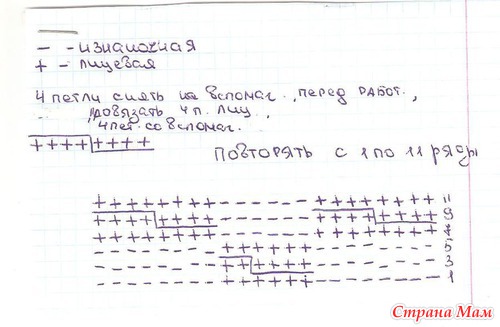 – - изнаночная
+ - лицевая
4 петли снять на вспомаг., перед работ.,
провязать 4 п. лиц,
4 пет. со вспомаг.
++++ ++++
повторять с 1 по 11 ряды
++++++++------++++++++ 11
++++++++------++++++++ 9
++++++++------++++++++ 7
--------++++++-------- 5
--------++++++-------- 3
--------++++++-------- 1
Страна Мам